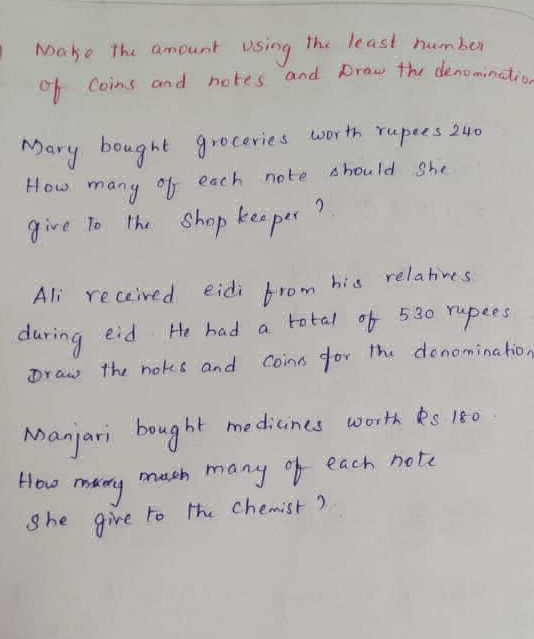 Make the amount using the least number
of Coins and notes and Draw the denomination
Mary bought groceries worth rupees 240
How many of each note should She
give To the Shop keeper ?
Ali received eidi from his relatives
during eid. He had a total of 530 rupees
Draw the notes and Coins for the denomination
Manjari bought medicines worth Rs 180.
How many of each note
She give to the Chemist ?